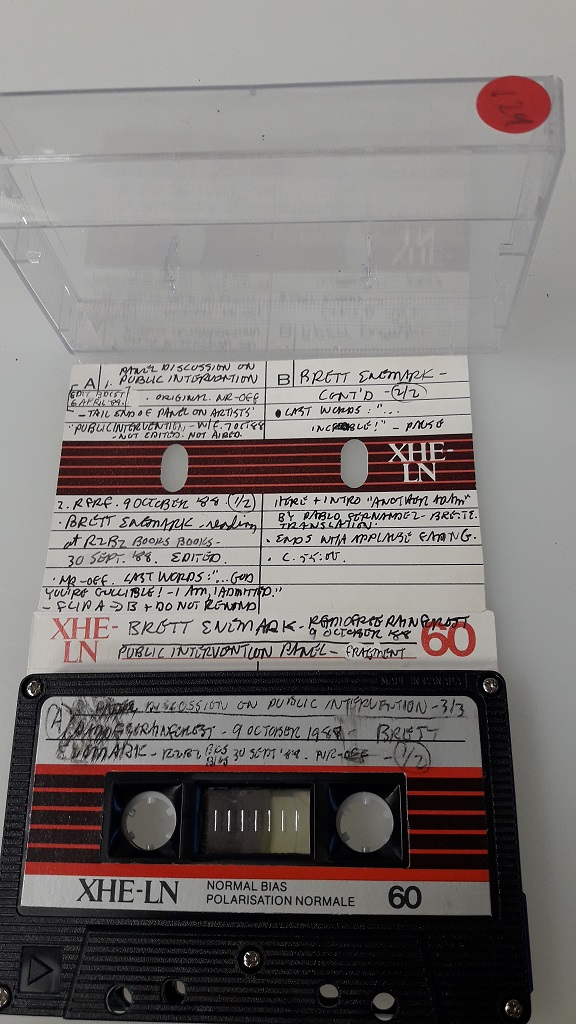 129
A
1. PANEL DISCUSSION ON
PUBLIC INTERVENTION
· ORIGINAL. NR-OFF
- TAIL END OF PANEL ON ARTISTS'
"PUBLIC INTERVENTION - W/E 7 OCT 88
- NOT EDITED. NOT AIRED.
B
BRETT ENEMARK -
CONT'D - (2/2)
• LAST WORDS: "...
INCREDIBLE!" - PAUSE
XHE-
LN
2. RFRF. 9 OCTOBER '88 (1/2)
· BRETT ENEMARK - reading
at R2B2 BOOKS BOOKS -
30 SEPT. '88. EDITED.
· NR-OFF. LAST WORDS: "...GOD
YOU'RE GULLIBLE! - I AM, I ADMITTED."
- FLIP A → B + DO NOT REWIND
HERE + INTRO "ANOTHER ADAM"
BY PABLO FERNANDEZ -
TRANSLATION.
· ENDS WITH APPLAUSE FADING.
· C. 55:00.
XHE-
LN
BRETT ENEMARK - RADIOFREERAINFOREST
9 OCTOBER '88
PUBLIC INTERVENTION PANEL - FRAGMENT
60
MADE IN CANADA
A
DISCUSSION ON PUBLIC INTERVENTION - 3/3
RADIOFREERAINFOREST - 9 OCTOBER 1988 - BRETT
ENEMARK - R2B2 BKS 30 SEPT '88. - (1/2)
XHE-LN
NORMAL BIAS
POLARISATION NORMALE
60